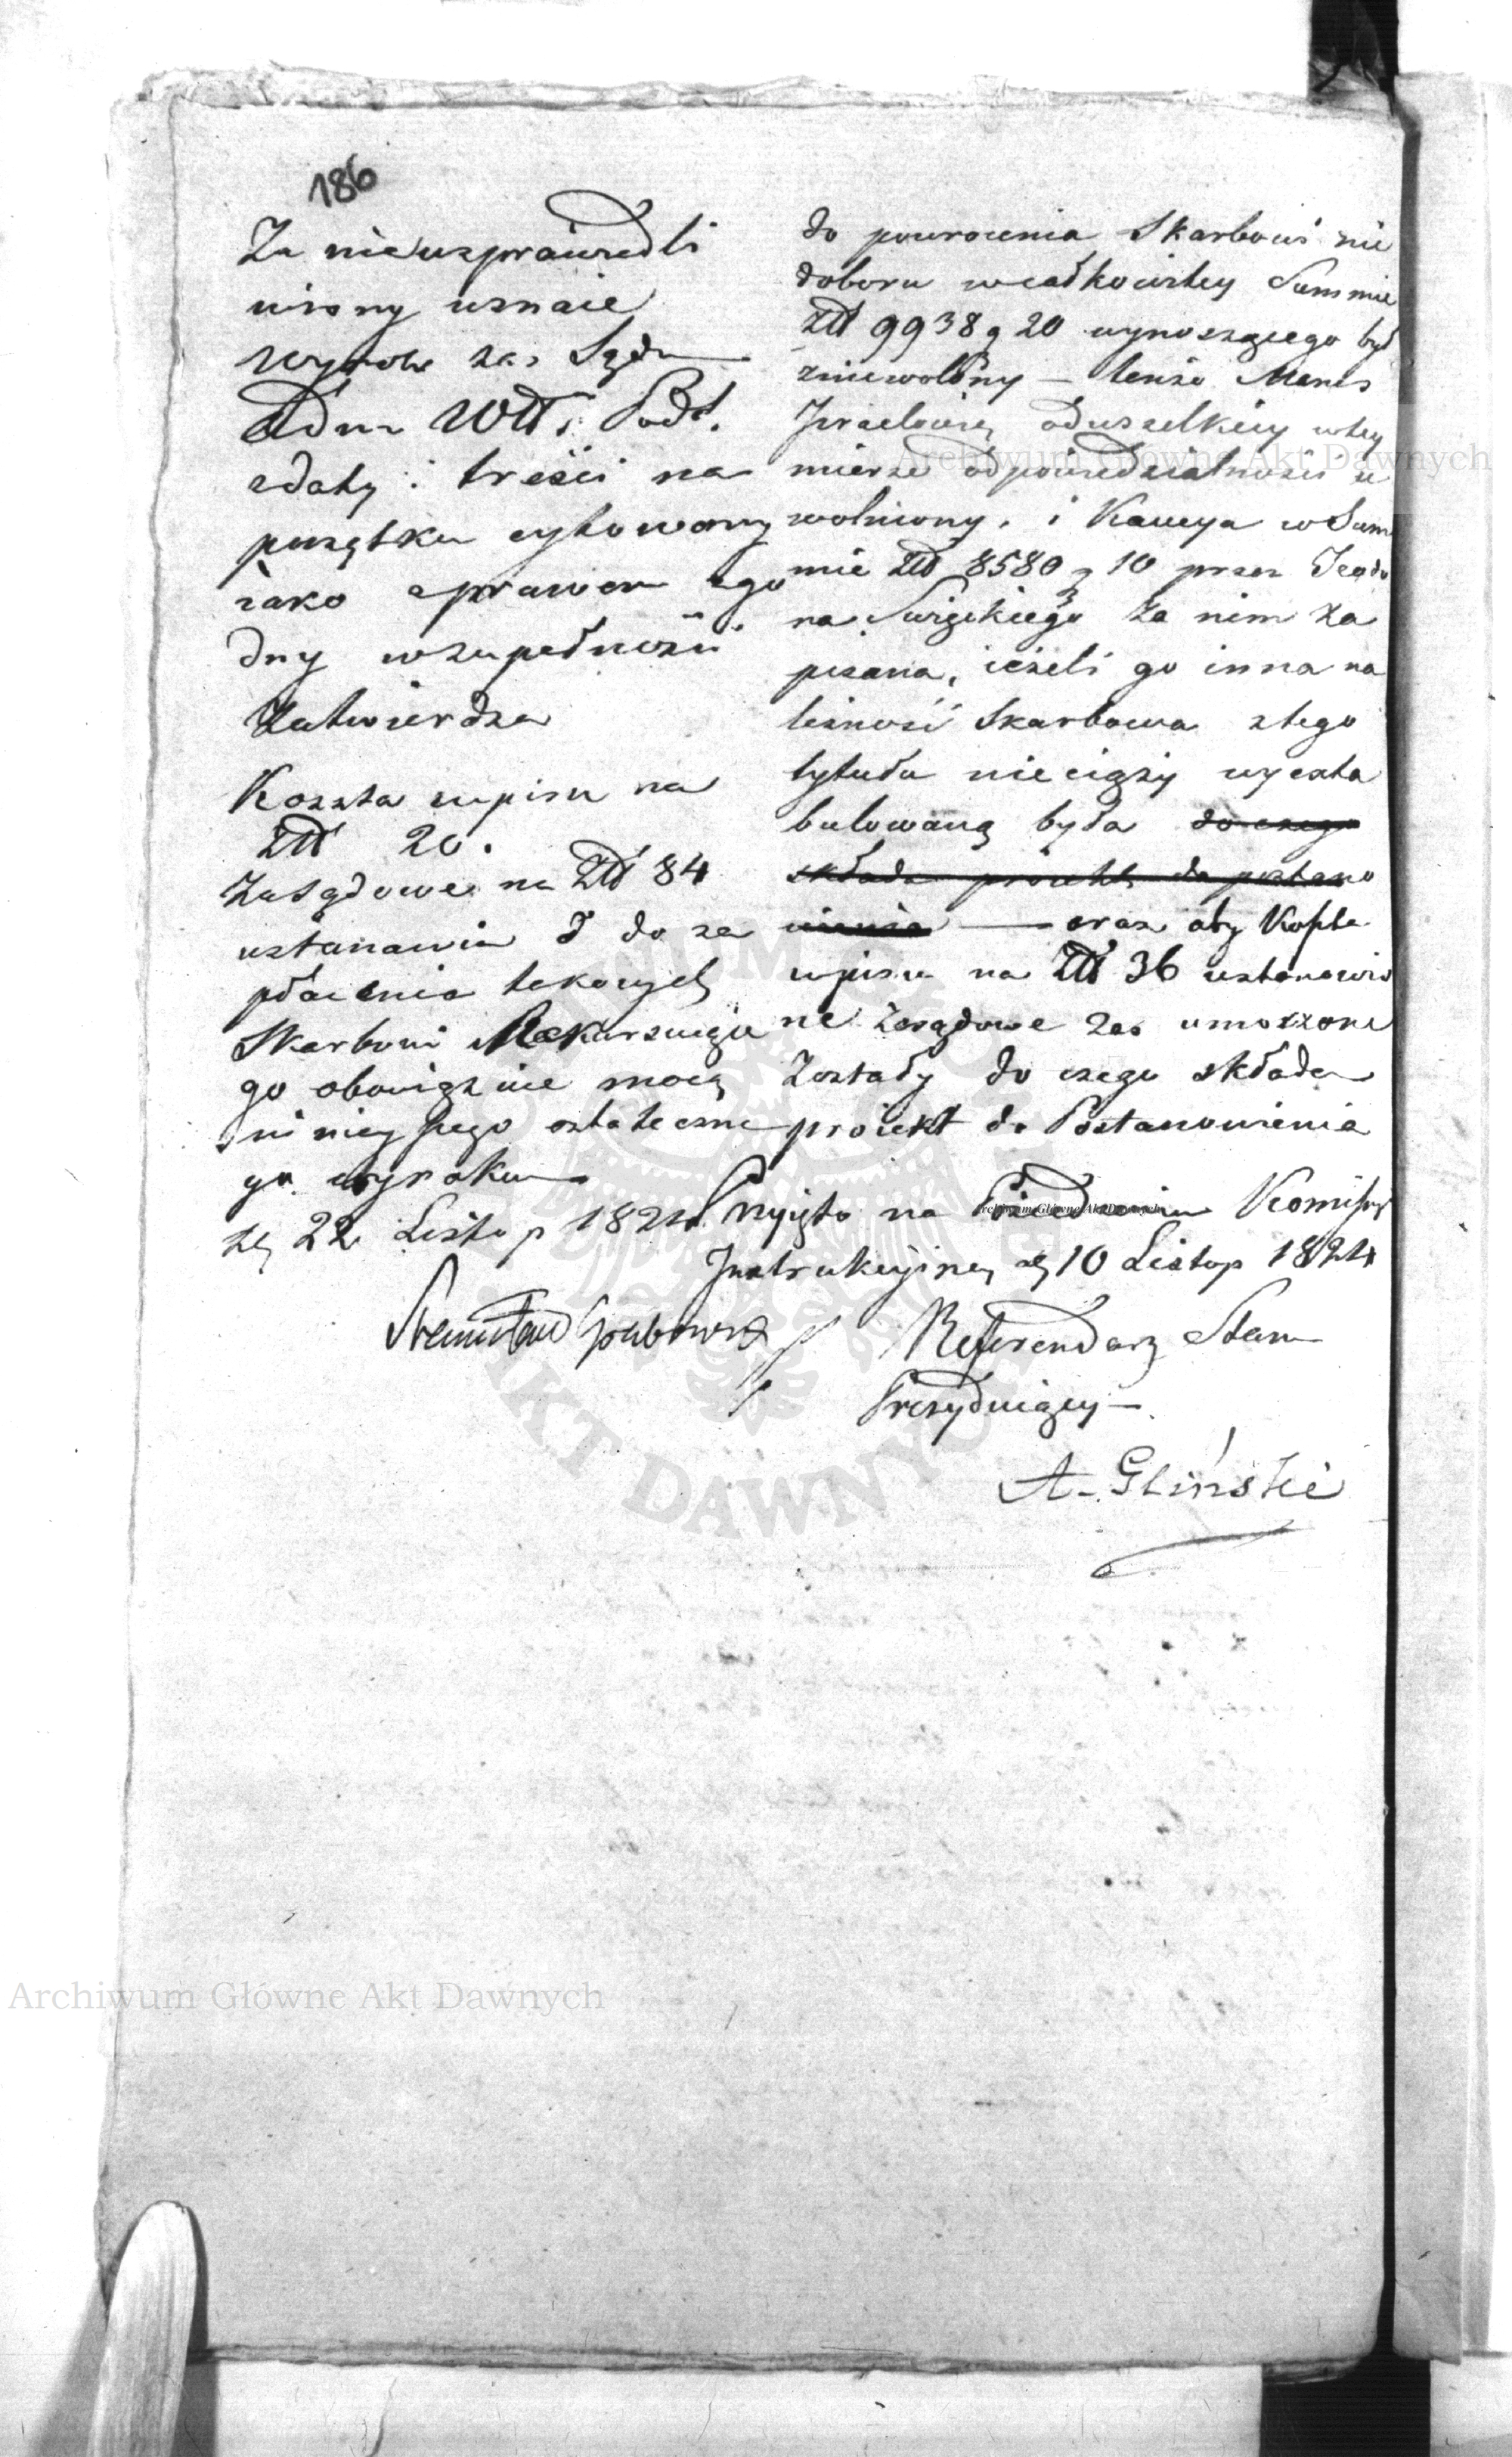 186
Za nieusprawiedli
wiony uznaie
wyrok zaś Sądu
Adm Wtt. Podl.
zdaty i treści na
początku cytowany
iako z prawem zgo
dny wzupełności
Zatwierdza
Koszta wpisu na
Złł 20.
Zasądowe na Złł 84
ustanawia I do za
płacenia takowych
Skarbowi Rekursuiące
go obowiązuie mocą
ninieyszego ostateczne
go wyroku
d. 22 Listop 1824
Stanisław Grabowski
do powrócenia Skarbowi nie
doboru w całkowitey Summie
Złł 9938 g 20 wynoszącego był
zniewolony — tenże Manes
Izraelowicz od wszelkiey w tey
mierze odpowiedzialności u
wolniony, i Kaucya w Sum
mie Złł 8580 g 10 przez Teodo
ra Święckiego za nim za
pisana, ieżeli go inna na
leżność Skarbowa z tego
tytułu nie ciąży wyexta
bulowaną była do czego
składa proiekt do postano
wienia — oraz aby Koszta
wpisu na Złł 36 ustanowio
ne Zasądowe zaś umorzone
Zostały do czego składa
proiekt do Postanowienia
Przyięto na Posiedzeniu Komissyi
Instrukcyiney d. 10 Listop 1824
Referendarz Stanu
Prezyduiący —
A. Gliński
Archiwum Główne Akt Dawnych
Archiwum Główne Akt Dawnych
Archiwum Główne Akt Dawnych